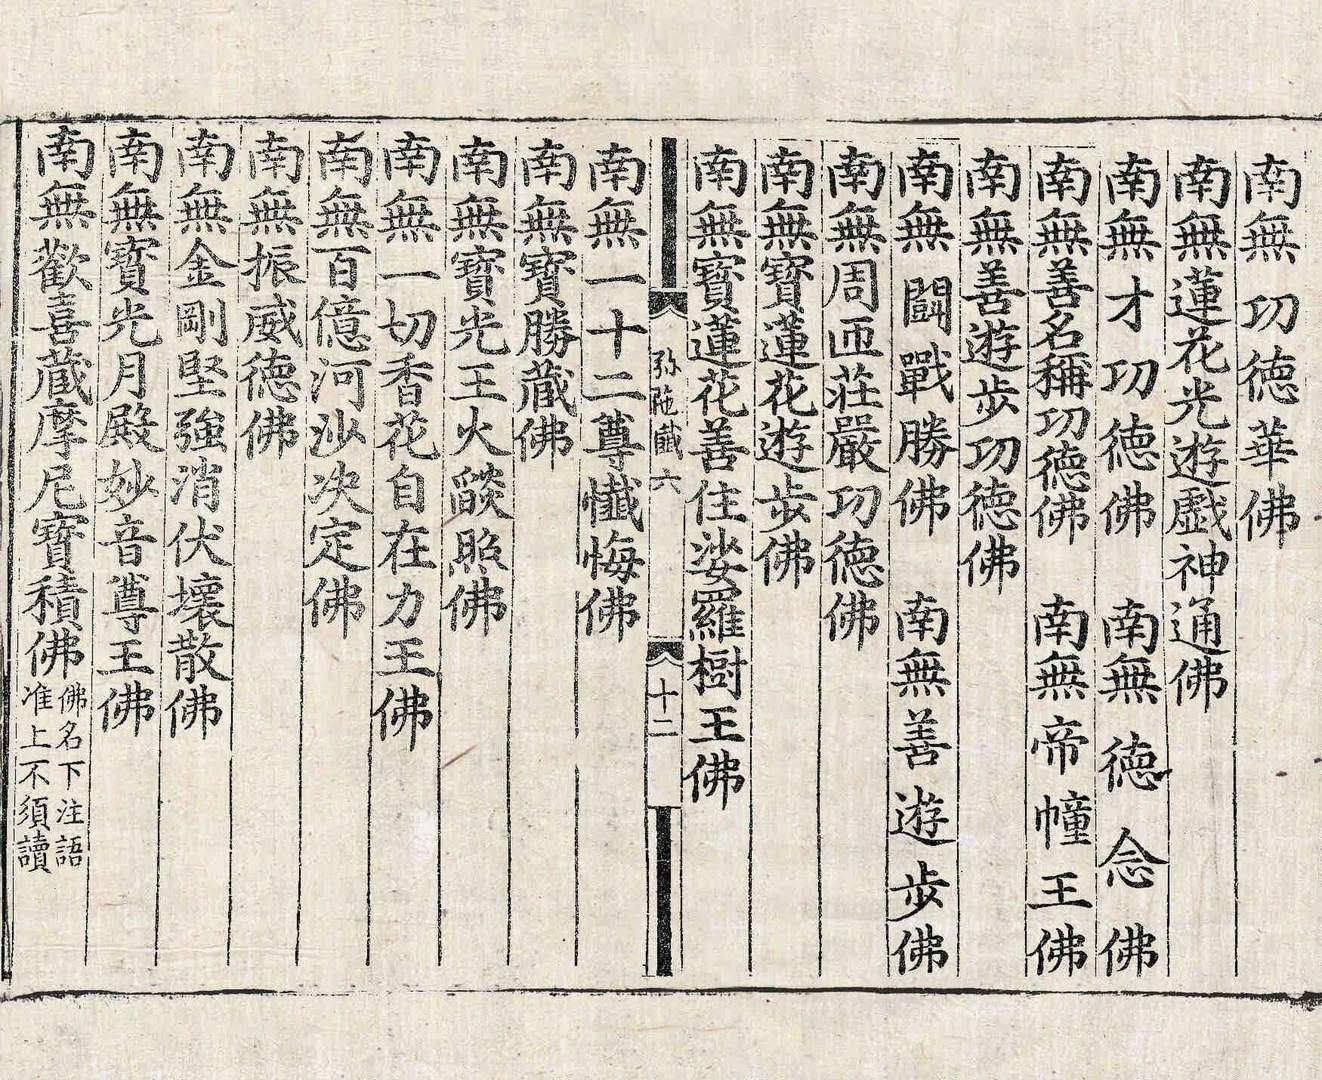 南無功德華佛
南無蓮花光遊戱神通佛
南無才功德佛　南無德念佛
南無善名稱功德佛　南無帝幢王佛
南無善遊步功德佛
南無鬪戰勝佛　南無善遊步佛
南無周匝莊嚴功德佛
南無寳蓮花遊步佛
南無寳蓮花善住娑羅樹王佛
弥陁懴六　十二
南無一十二尊懺悔佛
南無寳勝藏佛
南無寳光王火燄照佛
南無一切香花自在力王佛
南無百億河沙决定佛
南無振威德佛
南無金剛堅強消伏壞散佛
南無寳光月殿妙音尊王佛
南無歡喜藏摩尼寳積佛
佛名下注語
准上不須讀